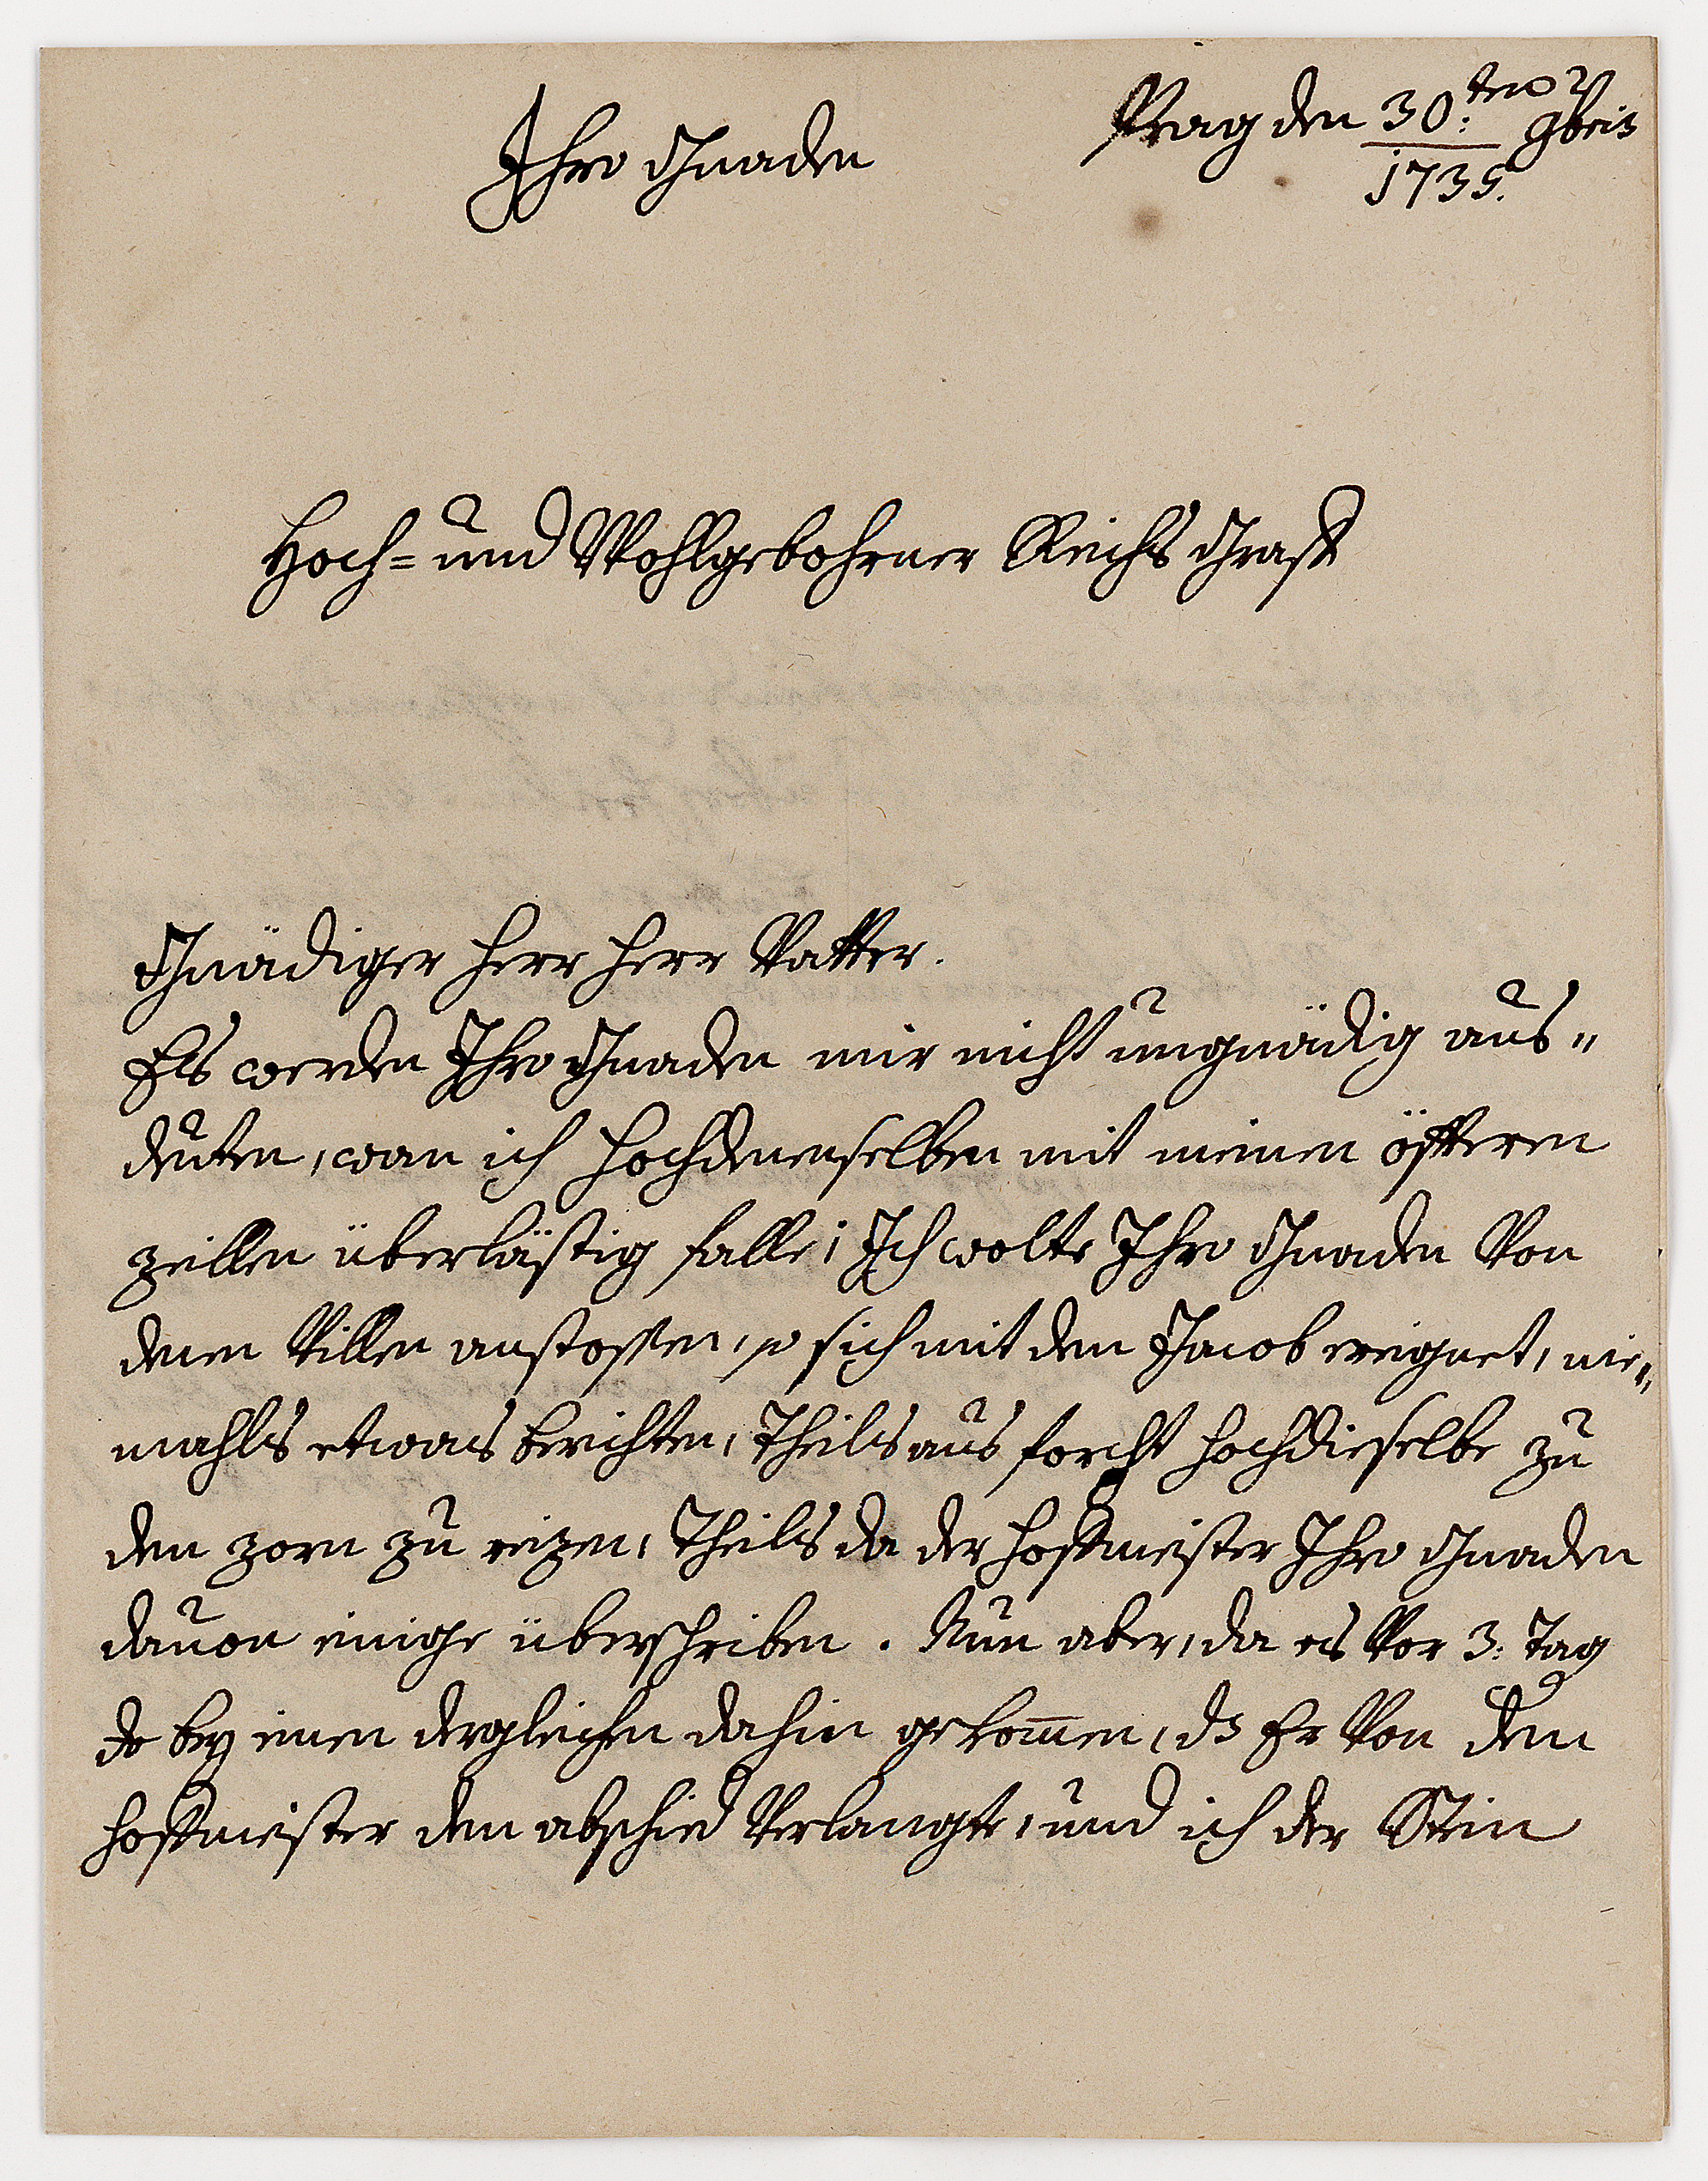 Prag den 30:ten 9bris
1735.
Ihro Gnaden
Hoch= und Wohlgebohrner Reichs Graff
Gnädiger Herr Herr Vatter.
Es werden Ihro Gnaden mir nicht ungnädig aus„
deuten, wan ich hochdenenselben mit meinen öfteren
zeillen überlästig falle; Ich wolte Ihro Gnaden Von
denen Villen anstossen, so sich mit dem Jacob ereignet, nie„
mahls etwas berichten, Theils aus forcht hochdieselbe zu
den zorn zu reizen, Theils da der hoffmeister Ihro Gnaden
dauon einige überschriben. Nun aber, da es Vor 3: Tag
bey einen dergleichen dahin gekommen, ds Er Von dem
hoffmeister den abschied Verlangte, und ich der Stein